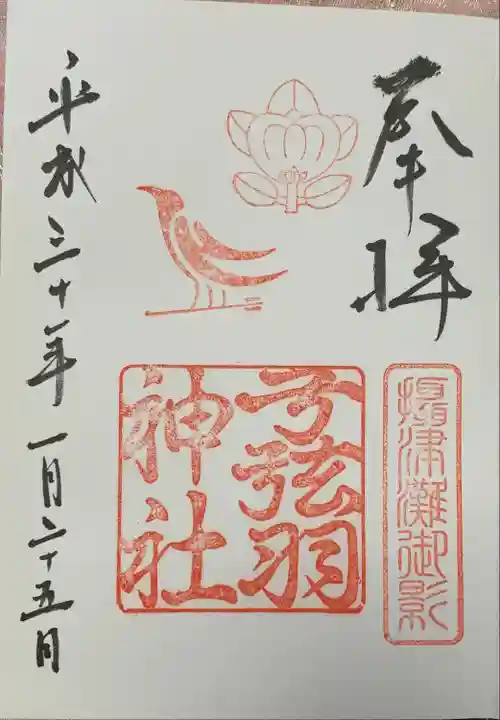 奉拝
攝津灘御影
弓弦羽
神社
平成三十一年一月二十五日